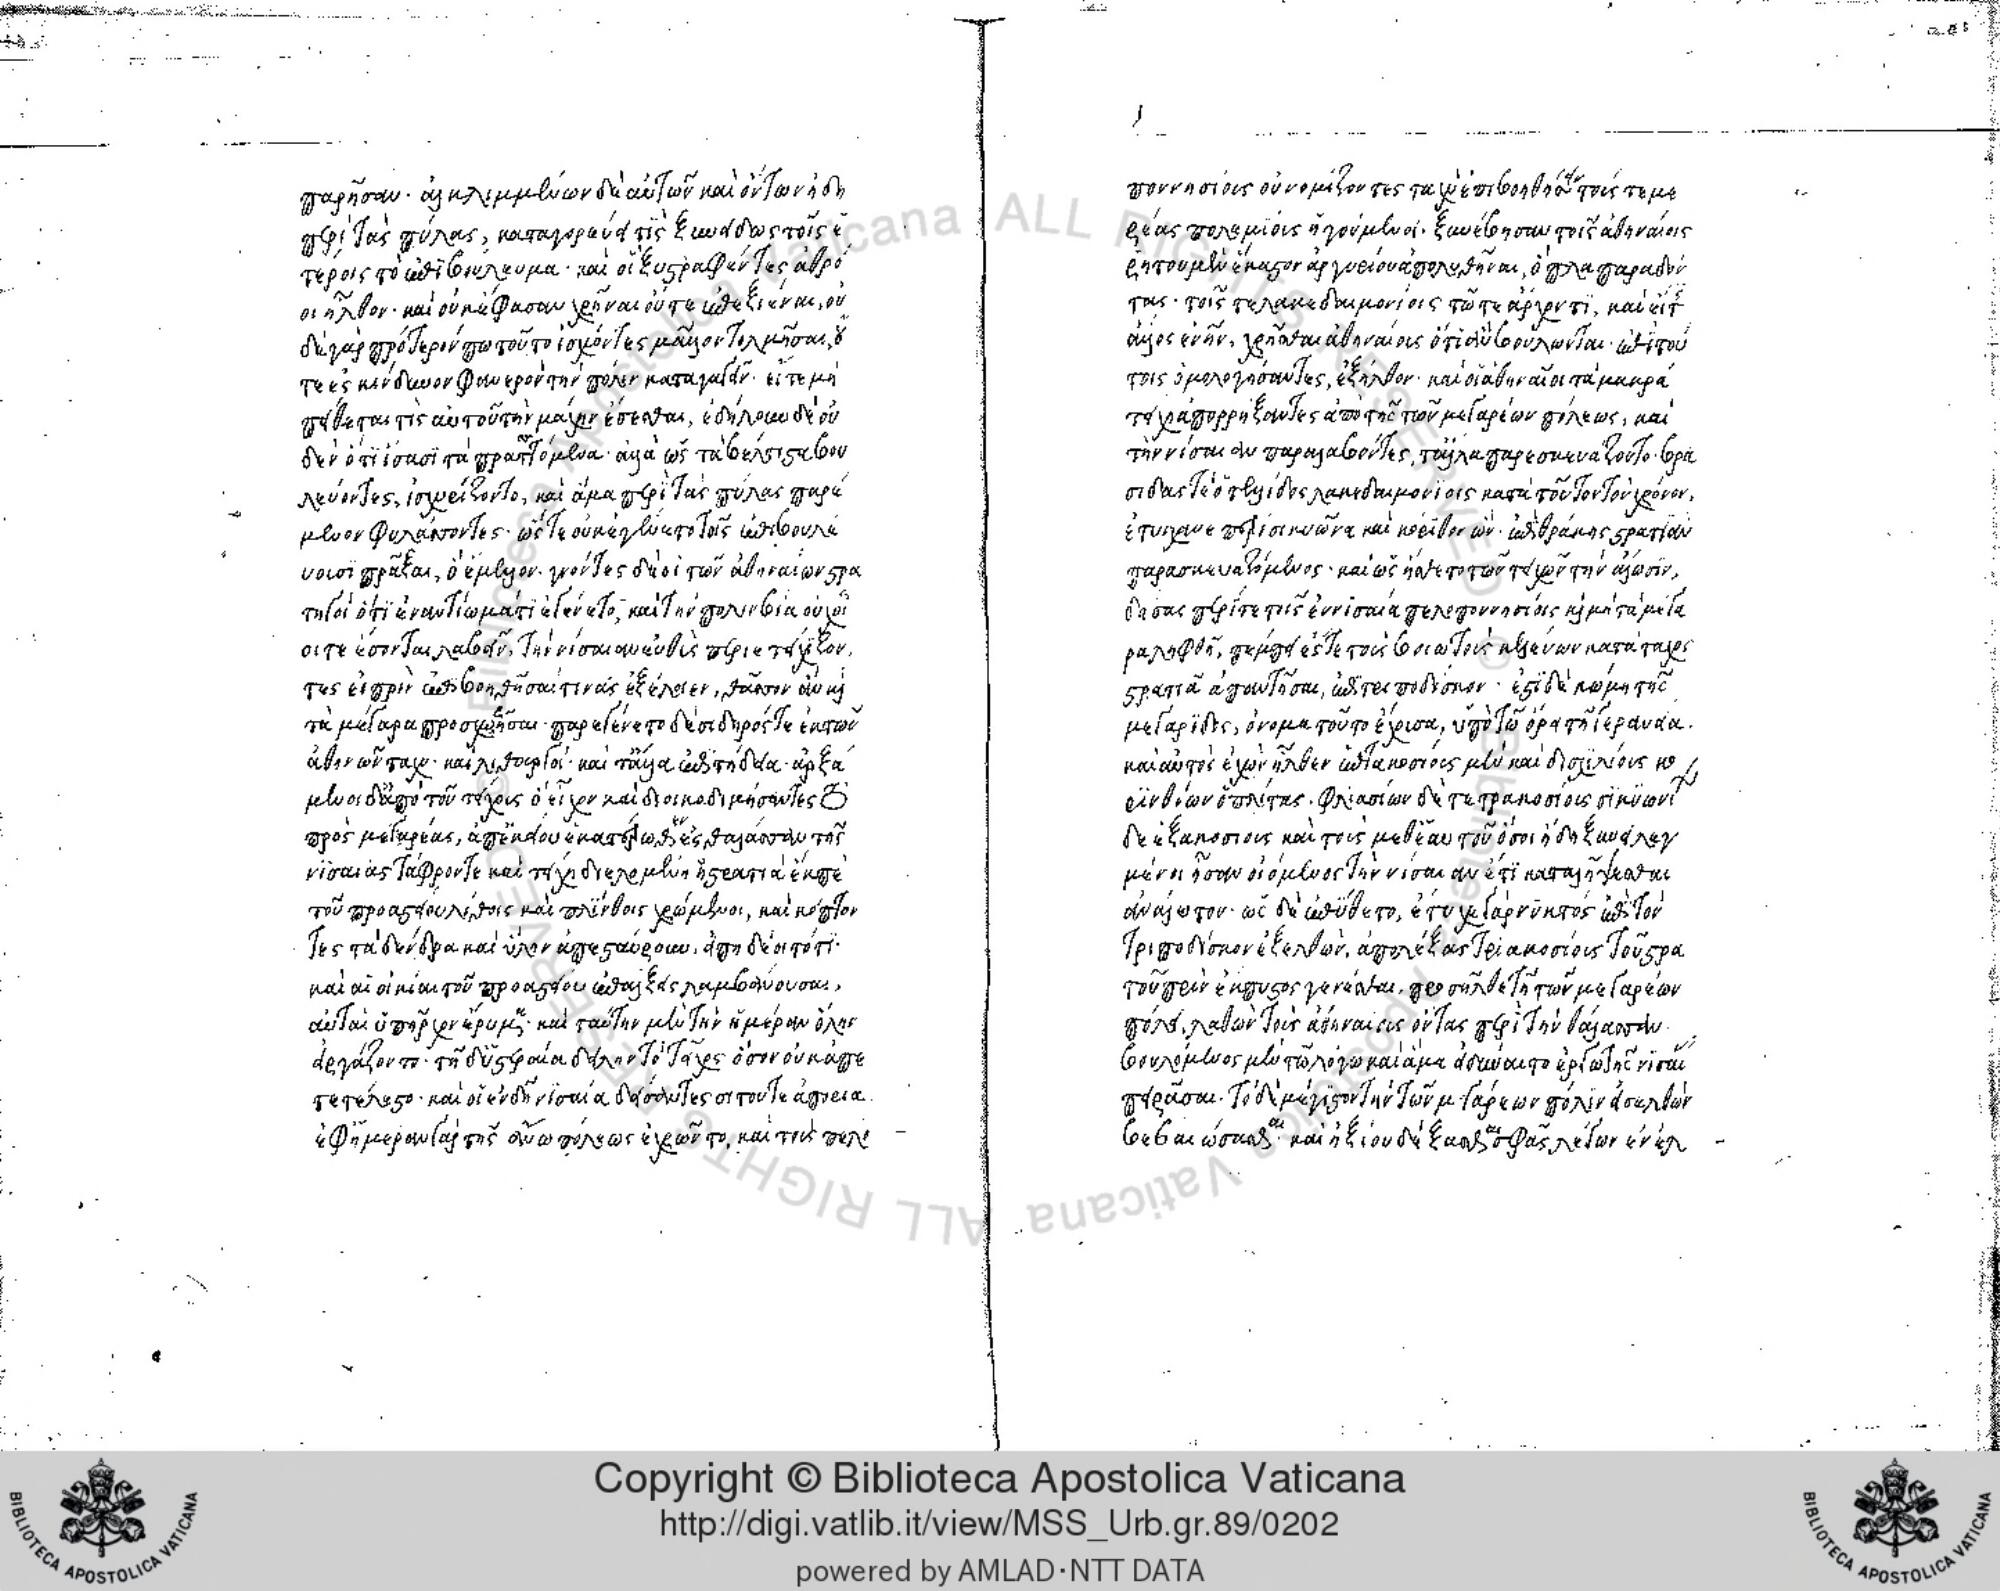 παρῆσαν· ἀληλιμμένων δὲ αὐτῶν καὶ ὄντων ἤδη
περὶ τὰς πύλας, καταγορεύει τὶς ξυνειδὼς τοῖς ἑ
τέροις τὸ ἐπιβούλευμα· καὶ οἳ ξυστραφέντες ἀθρό
οι ἦλθον· καὶ οὐκ ἔφασαν χρῆναι οὔτε ἐπεξιέναι, οὐ
δὲ γὰρ πρότερόν πω τοῦτο ἰσχύοντες μᾶλλον τολμῆσαι, οὔ
τε ἐς κίνδυνον φανερὸν τὴν πόλιν καταγαγεῖν· εἴτε μὴ
πείθεταί τις αὐτοῦ τὴν μάχην ἔσεσθαι, ἐδήλουν δὲ οὐ
δὲν ὅτι ἴσασι τὰ πραττόμενα· ἀλλὰ ὡς τὰ βέλτιστα βου
λεύοντες, ἰσχυρίζοντο, καὶ ἅμα περὶ τὰς πύλας παρέ
μενον φυλάττοντες· ὥστε οὐκ ἐγένετο τοῖς ἐπιβουλεύ
ουσι πρᾶξαι, ὃ ἔμελλον· γνόντες δὲ οἱ τῶν ἀθηναίων στρα
τηγοὶ ὅτι ἐναντίωμά τι ἐγένετο, καὶ τὴν πόλιν βίᾳ οὐχ οἷ
οί τε ἔσονται λαβεῖν, τὴν νίσαιαν εὐθὺς περιετείχιζον,
τες εἰ πρὶν ἐπιβοηθῆσαί τινας ἐξέλοιεν, θᾶσσον ἂν καὶ
τὰ μέγαρα προσχωρῆσαι· παρεγένετο δὲ σίδηρός τε ἐκ τῶν
ἀθηνῶν ταχὺ· καὶ λιθουργοί· καὶ τἆλλα ἐπιτήδεια· ἀρξά
μενοι δ' ἀπὸ τοῦ τείχους ὃ εἶχον καὶ διοικοδομήσαντες τὸ
πρὸς μεγαρέας, ἀπ' ἐκείνου ἑκατέρωθεν ἐς θάλασσαν τῆς
νισαίας τάφρον τε καὶ τείχη διελομένη ἡ στρατιὰ ἔκ τε
τοῦ προαστείου λίθοις καὶ πλίνθοις χρώμενοι, καὶ κόπτον
τες τὰ δένδρα καὶ ὕλην ἀπεσταύρουν, εἴπῃ δέοιτό τι·
καὶ αἱ οἰκίαι τοῦ προαστείου ἐπάλξεις λαμβάνουσαι,
αὐταὶ ὑπῆρχον ἔρυμα· καὶ ταύτην μὲν τὴν ἡμέραν ὅλην
εἰργάζοντο· τῇ δὲ ὑστεραίᾳ δείλην τὸ τεῖχος ὅσον οὐκ ἀπε
τετέλεστο· καὶ οἱ ἐν τῇ νισαίᾳ δείσαντες σίτου τε ἀπορίᾳ
ἐφ' ἡμέραν γὰρ τῆς ἄνω πόλεως ἐχρῶντο, καὶ τοὺς πελο
ποννησίους οὐ νομίζοντες ταχὺ ἐπιβοηθήσειν τούς τε με
γαρέας πολεμίους ἡγούμενοι· ξυνέβησαν τοῖς ἀθηναίοις
ῥητοῦ μὲν ἕκαστον ἀργυρίου ἀπολυθῆναι, ὅπλα παραδόν
τας· τοῖς τε λακεδαιμονίοις τῷ τε ἄρχοντι, καὶ εἴ τις
ἄλλος ἐνῆν, χρῆσθαι ἀθηναίοις ὅτι ἂν βούλωνται· ἐπὶ τού
τοις ὁμολογήσαντες, ἐξῆλθον· καὶ οἱ ἀθηναῖοι τὰ μακρὰ
τείχη ἀπορρήξαντες ἀπὸ τῆς τῶν μεγαρέων πόλεως, καὶ
τὴν νίσαιαν παραλαβόντες, τἆλλα παρεσκευάζοντο· βρα
σίδας τε ὁ τέλλιδος λακεδαιμόνιος κατὰ τοῦτον τὸν χρόνον,
ἐτύγχανε περὶ σικυῶνα καὶ κόρινθον ὢν· ἐπὶ θρᾴκης στρατιὰν
παρασκευαζόμενος· καὶ ὡς ᾔσθετο τῶν τειχῶν τὴν ἅλωσιν,
δείσας περί τε τοῖς ἐν νισαίᾳ πελοποννησίοις καὶ μὴ τὰ μέγα
ρα ληφθῇ, πέμπει ἔς τε τοὺς βοιωτοὺς κελεύων κατὰ τάχος
στρατιᾷ ἀπαντῆσαι, ἐπὶ τριποδίσκον· ἔστι δὲ κώμη τῆς
μεγαρίδος, ὄνομα τοῦτο ἔχουσα, ὑπὸ τῷ ὄρει τῇ γερανείᾳ·
καὶ αὐτὸς ἔχων ἦλθεν ἑπτακοσίους μὲν καὶ δισχιλίους κο
ρινθίων ὁπλίτας· φλιασίων δὲ τετρακοσίους σικυωνίων
δὲ ἑξακοσίους καὶ τοὺς μεθ' ἑαυτοῦ ὅσοι ἤδη ξυνειλεγ
μένοι ἦσαν οἰόμενος τὴν νίσαιαν ἔτι καταλήψεσθαι
ἀνάλωτον· ὡς δὲ ἐπύθετο, ἔτυχε γὰρ νυκτὸς ἐπὶ τὸν
τριποδίσκον ἐξελθὼν, ἀπολέξας τριακοσίους τοῦ στρα
τοῦ πρὶν ἔκπυστος γενέσθαι, προσῆλθε τῇ τῶν μεγαρέων
πόλει, λαθὼν τοὺς ἀθηναίους ὄντας περὶ τὴν θάλασσαν·
βουλόμενος μὲν τῷ λόγῳ καὶ ἅμα εἰ δύναιτο ἔργῳ τῆς νισαίας
πειρᾶσαι· τὸ δὲ μέγιστον τὴν τῶν μεγαρέων πόλιν εἰσελθὼν
βεβαιώσασθαι· καὶ ἠξίου δέξασθαι σφᾶς λέγων ἐν ἐλ